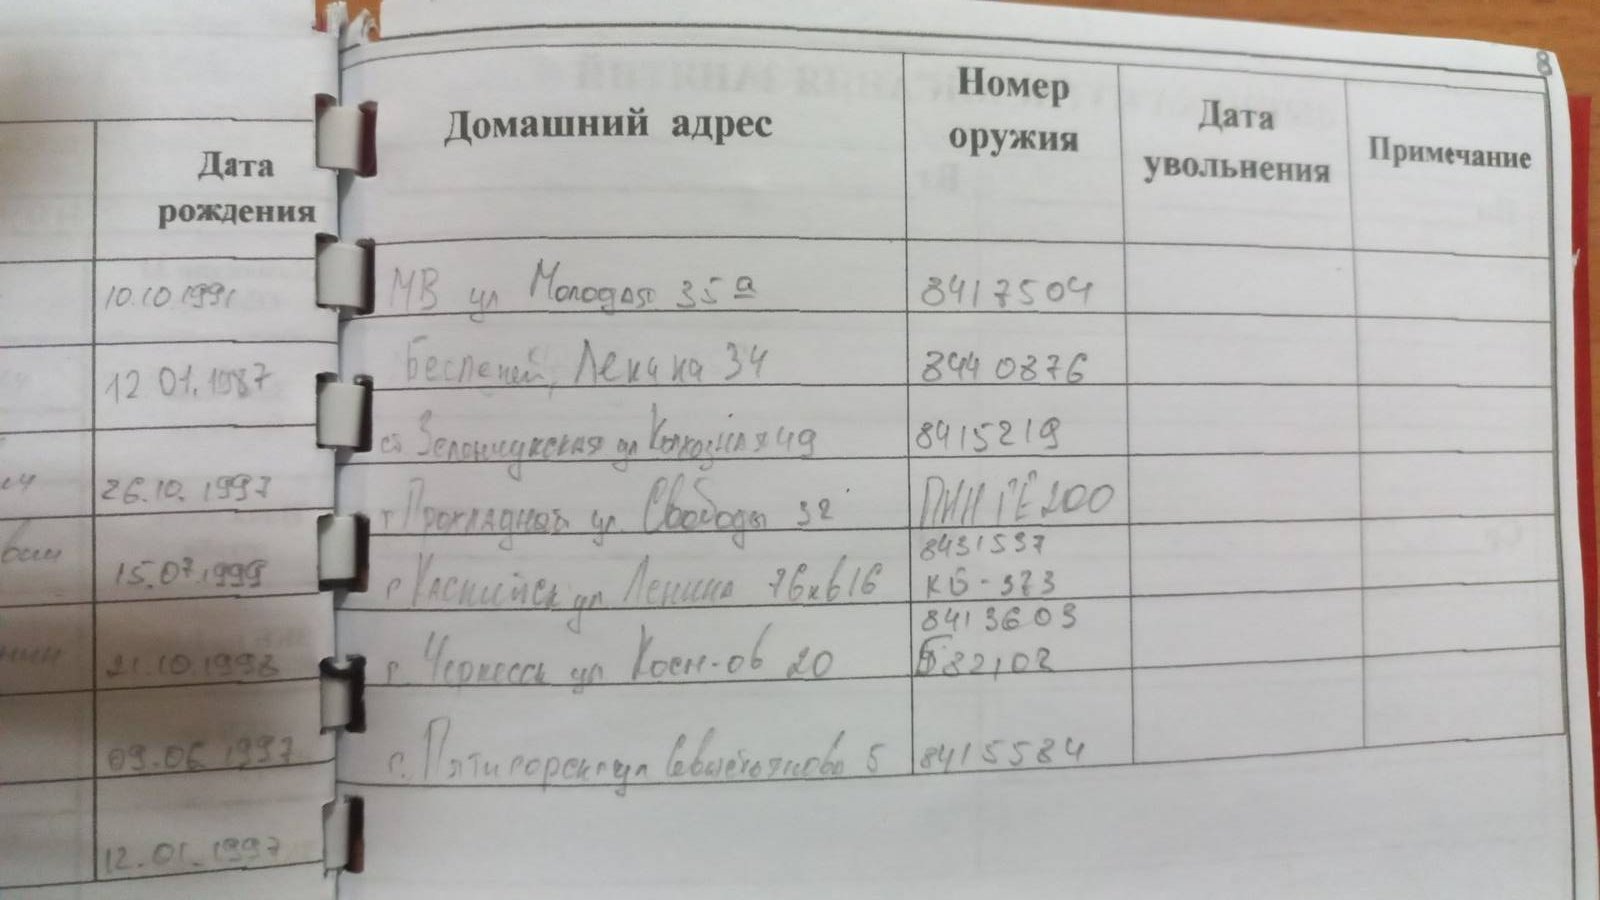 8
Дата
рождения
Домашний адрес
Номер
оружия
Дата
увольнения
Примечание
10.10.1991
МВ ул Молодая 35а
8417504
12 01.1987
Ленина 34
8440876
26.10.1997
ст Зеленчукская ул Колхозная 49
8415219
15.07.1999
г Прохладной ул. Свободы 32
200
21.10.1998
г Каспийск ул Ленина 76
8431537
КБ-373
09.06.1997
г. Черкесск ул Косм-ов 20
8413603
82,02
12.01.1997
г. Пятигорск ул 5
8415584